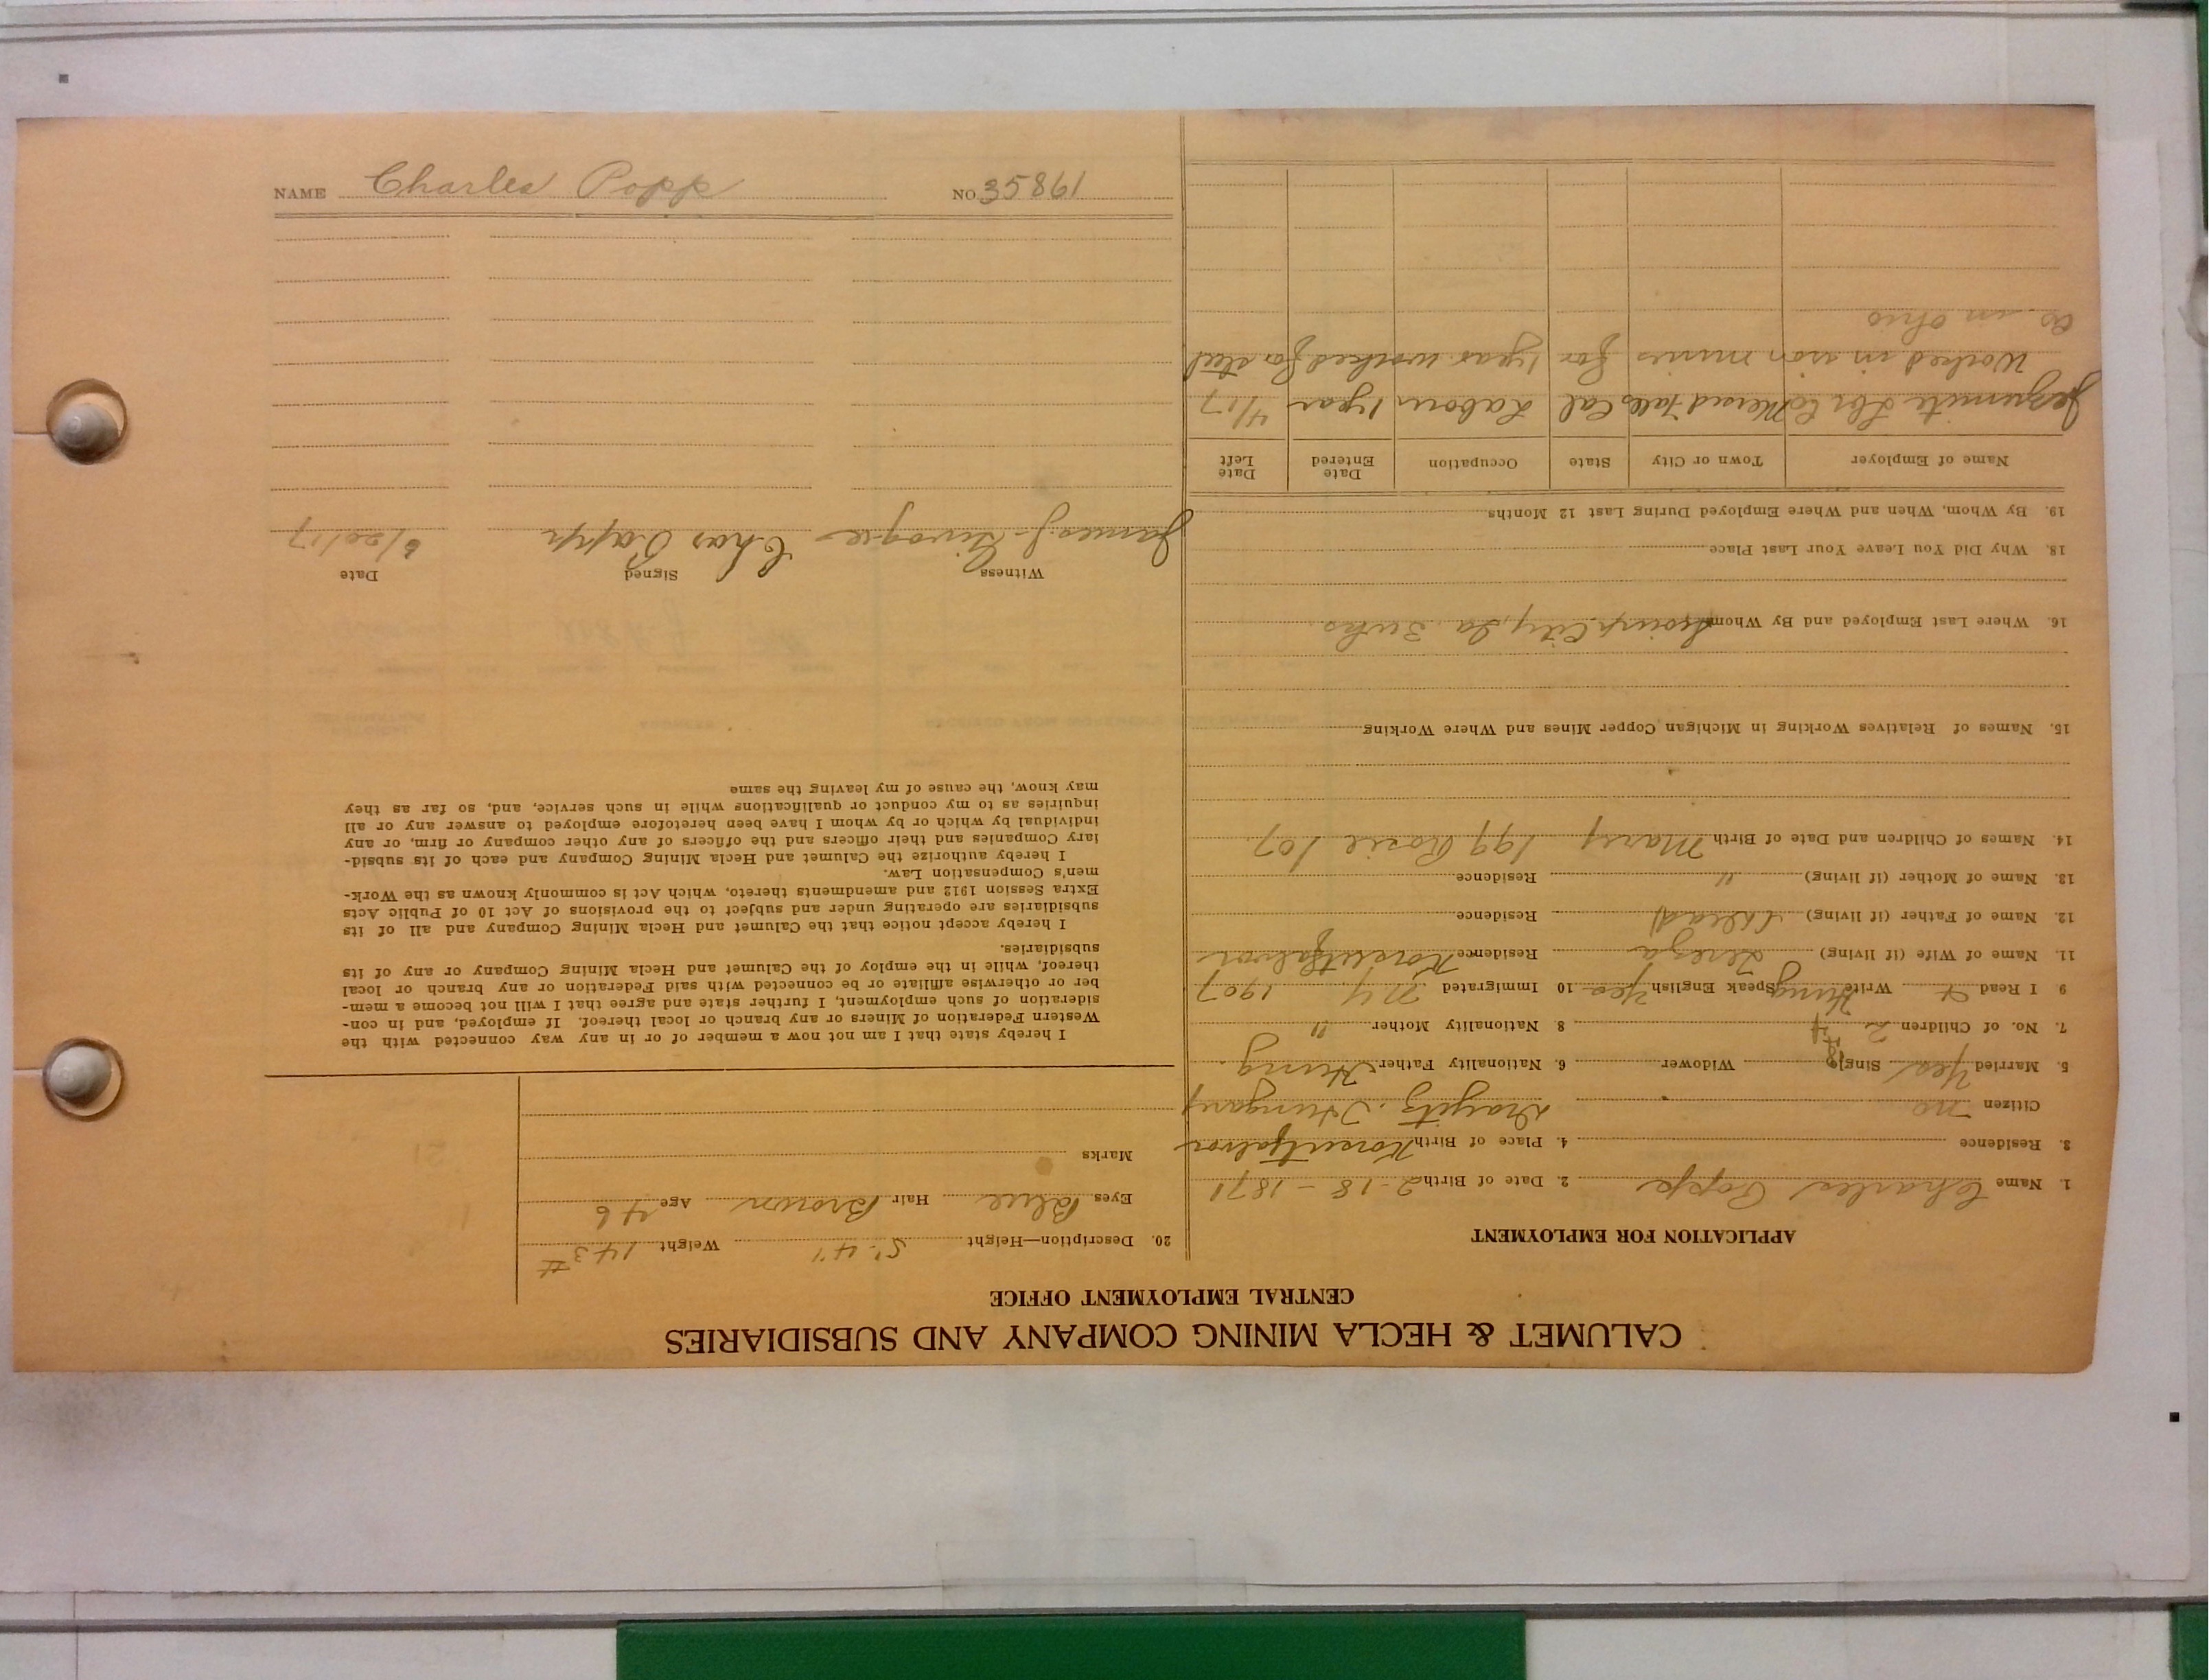 CALUMET & HECLA MINING COMPANY AND SUBSIDIARIES
CENTRAL EMPLOYMENT OFFICE
APPLICATION FOR EMPLOYMENT
1. Name Charles Popp 2. Date of Birth 2-18-1871
3. Residence 4. Place of Birth
Citizen no Hungary
5. Married Yes Single Widower 6. Nationality Father Hung.
7. No. of Children 2 8. Nationality Mother "
9 I Read Write Hung Speak English Yes 10 Immigrated N.Y. 1907
11. Name of Wife (if living) Tereza Residence
12. Name of Father (if living) (dead) Residence
13. Name of Mother (if living) " Residence
14. Names of Children and Date of Birth Mary 199 Rosie 107
15. Names of Relatives Working in Michigan Copper Mines and Where Working
16. Where Last Employed and By Whom City,
18. Why Did You Leave Your Last Place
19. By Whom, When and Where Employed During Last 12 Months
Name of Employer Town or City State Occupation Date Entered Date Left
Merced Falls Cal Labour 1 year 4/17
Worked in iron mines for 1 year worked for steel
Co in Ohio
20. Description—Height 5'-4" Weight 143#
Eyes Blue Hair Brown Age 46
Marks
I hereby state that I am not now a member of or in any way connected with the
Western Federation of Miners or any branch or local thereof. If employed, and in con-
sideration of such employment, I further state and agree that I will not become a mem-
ber or otherwise affiliate or be connected with said Federation or any branch or local
thereof, while in the employ of the Calumet and Hecla Mining Company or any of its
subsidiaries.
I hereby accept notice that the Calumet and Hecla Mining Company and all of its
subsidiaries are operating under and subject to the provisions of Act 10 of Public Acts
Extra Session 1912 and amendments thereto, which Act is commonly known as the Work-
men's Compensation Law.
I hereby authorize the Calumet and Hecla Mining Company and each of its subsid-
iary Companies and their officers and the officers of any other company or firm, or any
individual by which or by whom I have been heretofore employed to answer any or all
inquiries as to my conduct or qualifications while in such service, and, so far as they
may know, the cause of my leaving the same
Witness Signed Date
James J. Chas Papp 6/20/17
NAME Charles Popp NO 35861